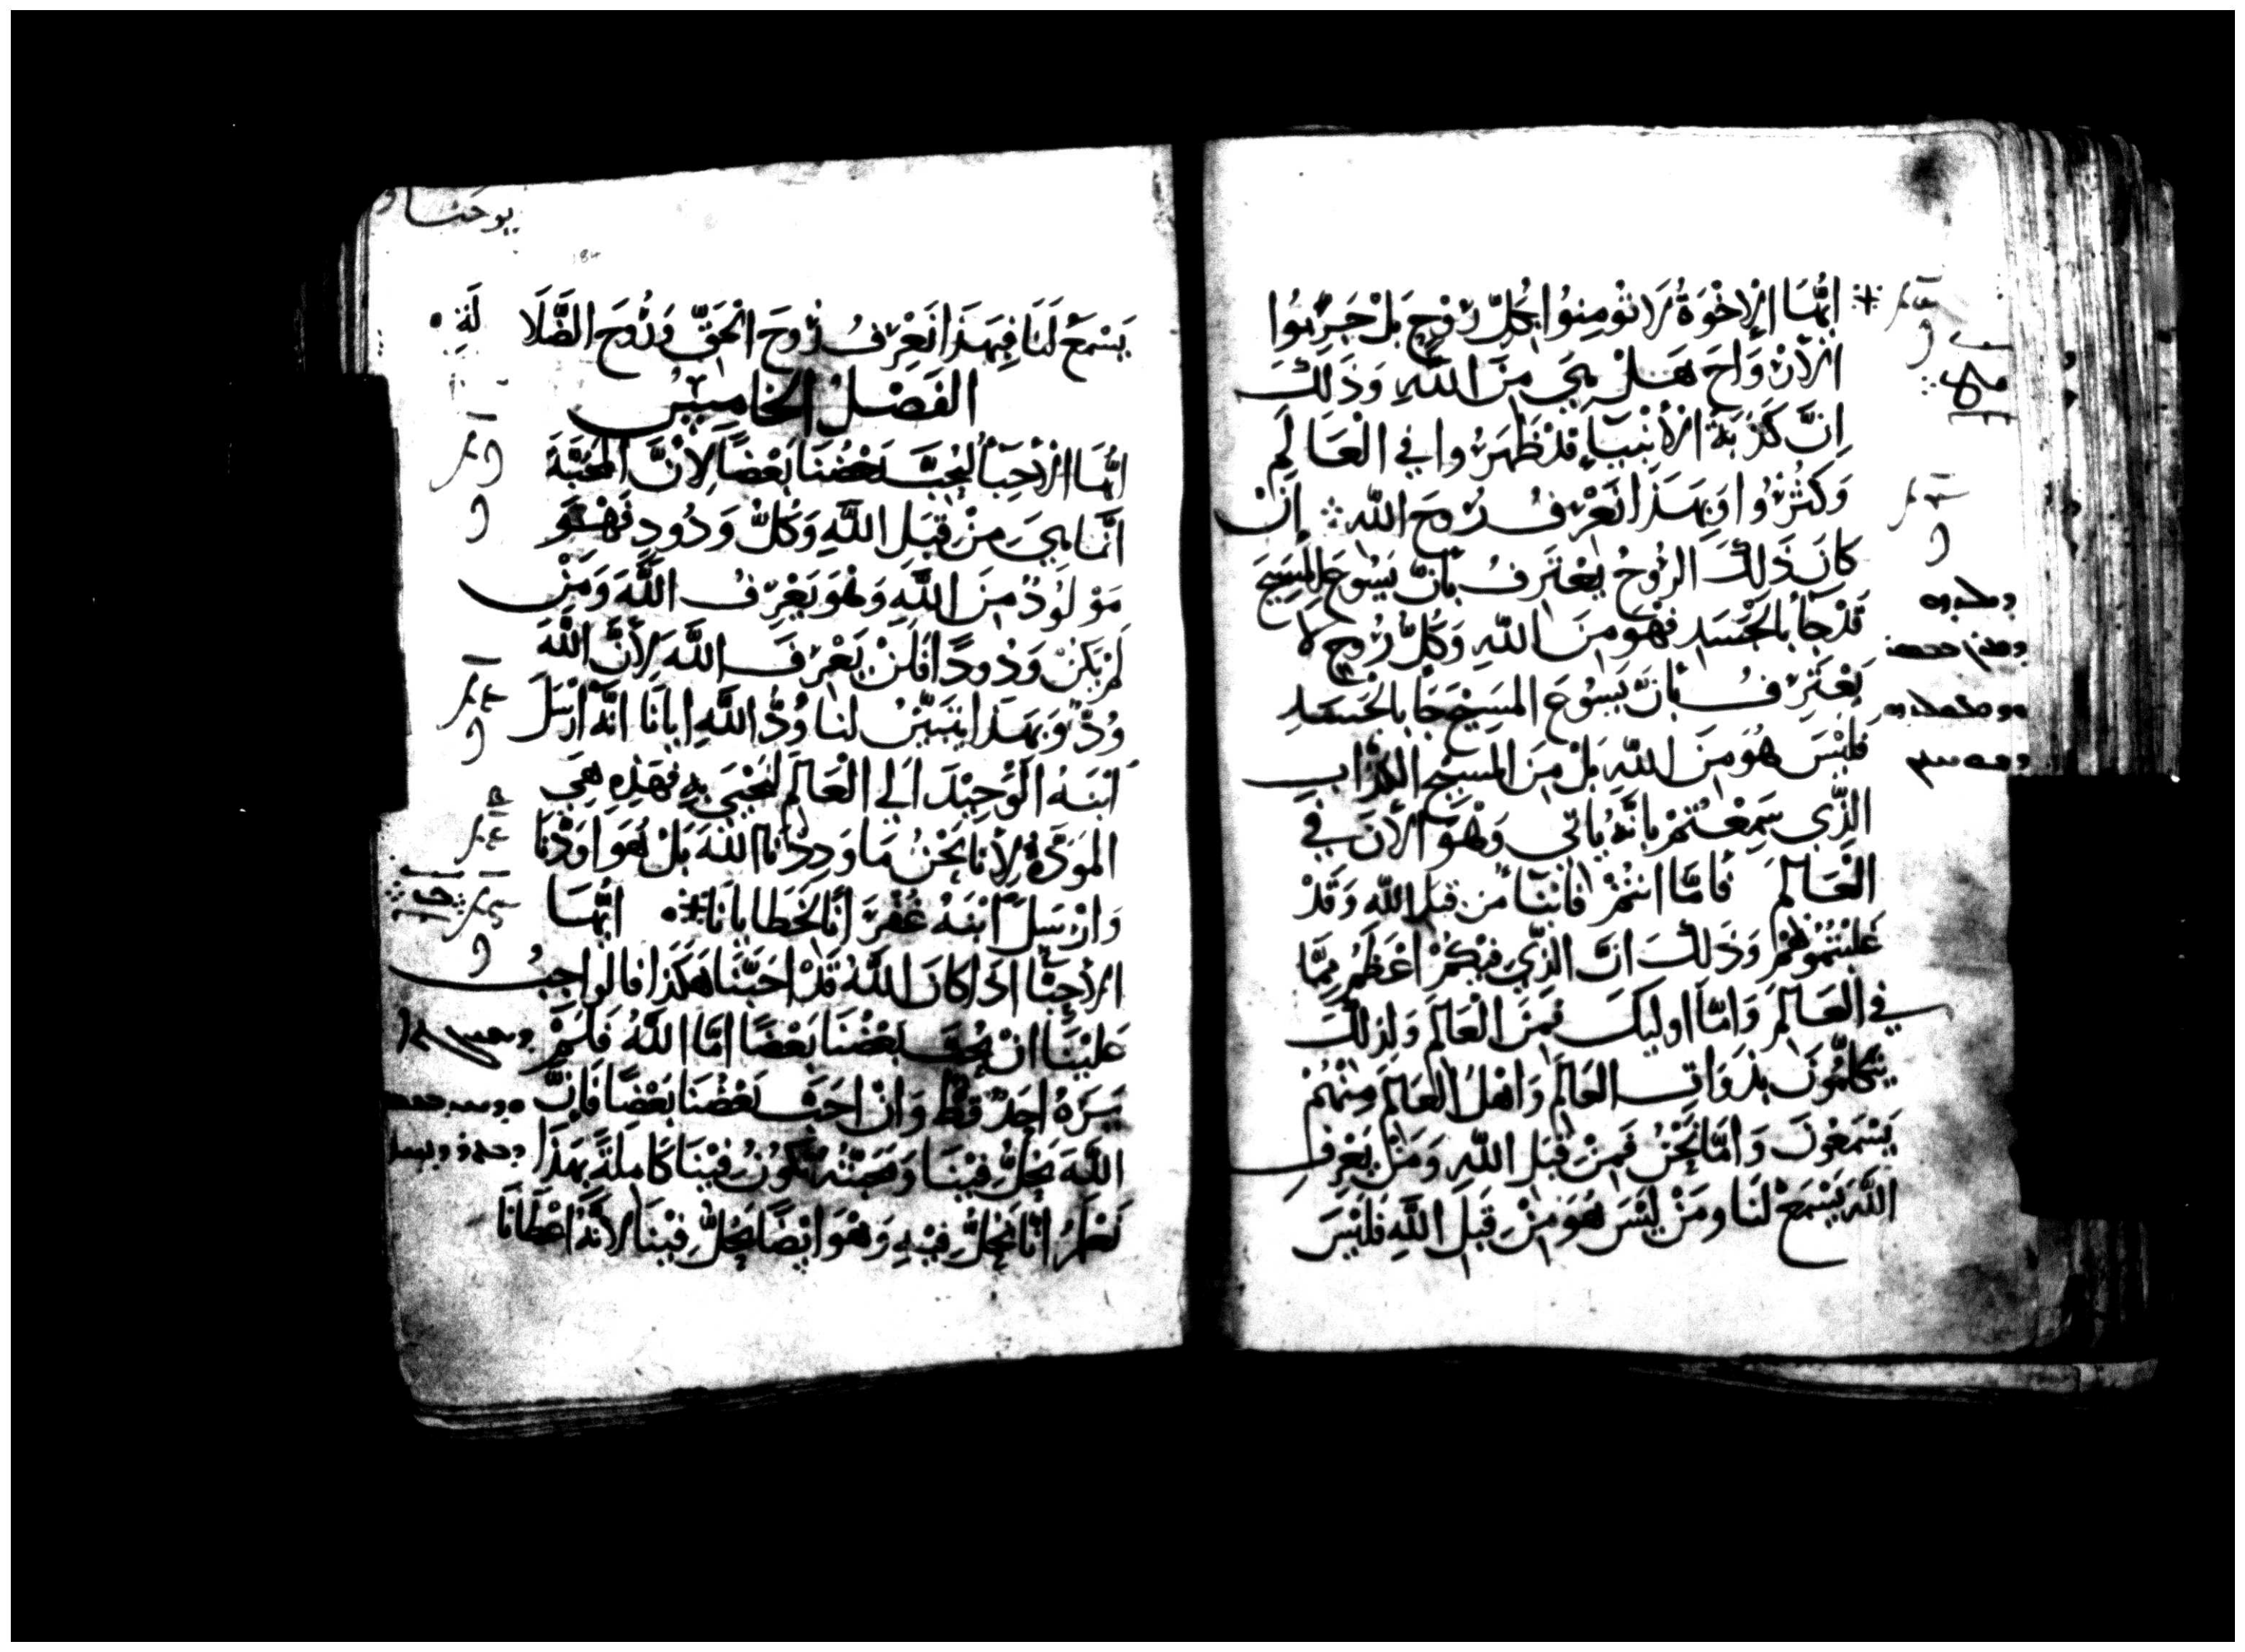 ايُّهَا الإِخْوَةُ لَا تُومِنُوا بِكُلِّ رُوْحٍ بَلْ جَرِّبُوا
الأَرْوَاحَ هَلْ هِيَ مِنَ اللَّهِ وَذَلِكَ
انَّ كَذَبَةَ الأَنْبِيَآءِ قَدْ ظَهَرُوا فِي الْعَالَمِ
وَكَثُرُوا وَبِهَذَا نَعْرِفُ رُوحَ اللَّه ؞ إِنْ
كَانَ ذَلِكَ الرُّوحُ يَعْتَرِفُ بأنَّ يَسُوعَ المَسِيحَ
قَدْ جَآ بالجَسَدِ فَهُو مِنَ اللَّهِ وَكُلُّ رُوحٍ لا
يَعْتَرِفُ بأنَّ يَسُوعَ المَسِيْحَ جَآ بالْجَسَدِ
فَلَيْسَ هُوَ مِنَ اللَّهِ بَلْ مِنَ المَسِيْحِ الكَذَّابِ
الذِّي سَمِعْتُمْ بانَّهُ يَاتي وَهْوَ الأَنَ فِي
الْعَالَمِ فَامَّا انتُمْ فَانْتُمْ من قبَل اللَّهِ وَقَدْ
غَلَبْتُمُوهُمْ وَذَلِكَ انَّ الذِّي فِيْكُمْ اعْظَمُ مِمَّا
فِي الْعَالَمِ وَامَّا اوليِكَ فَمِنَ الْعَالَمِ وَلِذَلِكَ
يَتَكَلَّمُونَ بذَوَاتِ العَالَمِ وَاهْلُ العَالَمِ مِنْهُمْ
يَسْمَعُونَ وَامَّا نَحْنُ فَمِنْ قِبَلِ اللَّهِ وَمَنْ يَعْرِفِ
اللَّهَ يَسْمَعْ لَنَا ومَنْ لَيْسَ هُوَ مِنْ قِبَلِ اللَّهِ فَلَيْسَ
يوحنا
184
يَسْمَعُ لَنَا فَبِهَذَا نَعْرِفُ رُوحَ الْحَقِّ وَرُوحَ الضَّلَا
لَةِ
الفَصْلُ الخَامِسُ
ايُّهَا الأَحِبَّآ لِنُحِبَّ بَعْضُنَا بَعْضًا لِأَنَّ المَحَبَّةَ
انَّمَا هِيَ مِنْ قِبَلِ اللَّهِ وَكُلُّ وَدُودٍ فَهُوَ
مَوْلُودٌ مِنَ اللَّهِ وَهْوَ يَعْرِفُ اللَّهَ وَمَنْ
لَمْ يَكُنْ وَدُودًا فَلَنْ يَعْرِفَ اللَّهَ لِأَنَّ اللَّهَ
وُدٌّ وَبِهَذَا يَتَبَيَّنُ لنا وُدُّ اللَّهِ ايانَا انَّهُ ارْسَلَ
ابْنَهُ الْوَحِيْدَ الَى الْعَالَمِ لنَحْيَى بِهِ فَهَذِهِ هِيَ
المَوَدَّةُ لِأَنا نَحْنُ مَا وَدِدْنَا اللَّهَ بَلْ هُوَ اوَدَّنَا
وَارْسَلَ ابْنَهُ غُفْرَانًا لخَطَايانَا ايُّهَا
الأَحِبَّآ اذَا كَانَ اللَّهُ قَدْ احَبَّنَا هَكَذَا فالواجِبُ
عَلَيْنَا انْ يُحِبَّ بَعْضُنَا بَعْضًا امَّا اللَّهُ فَلَمْ
يَرَهُ احَدٌ قَطُّ وَانْ احَبَّ بَعْضُنَا بَعْضًا فَانَّ
اللَّهَ يَحُلُّ فِيْنَا وَمَحَبَّتُهُ تَكُوْنُ فِيْنَا كَامِلَةً بهَذَا
نَعْلَمُ انَّا نَحُلُّ فِيْهِ وَهْوَ ايْضًا يَحُلُّ فِيْنَا لأنَّهُ اعْطَانَا